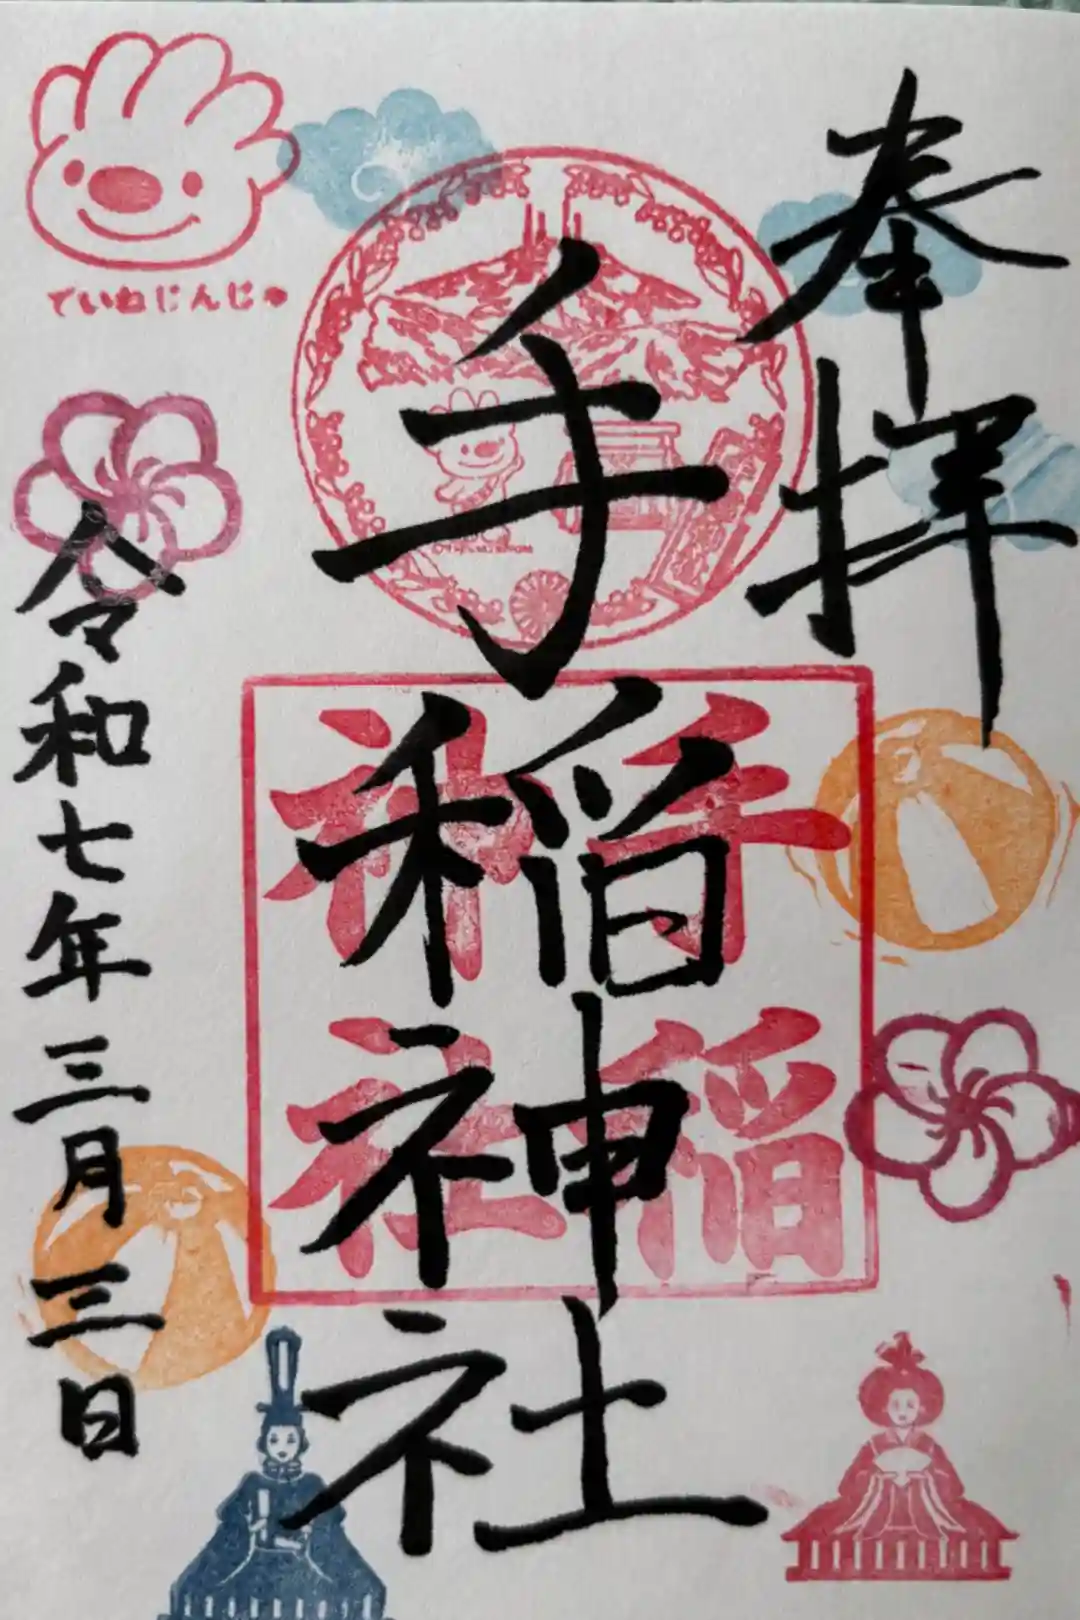 奉拝
手稲神社
令和七年三月三日
ていねじんじゃ
手稲
神社